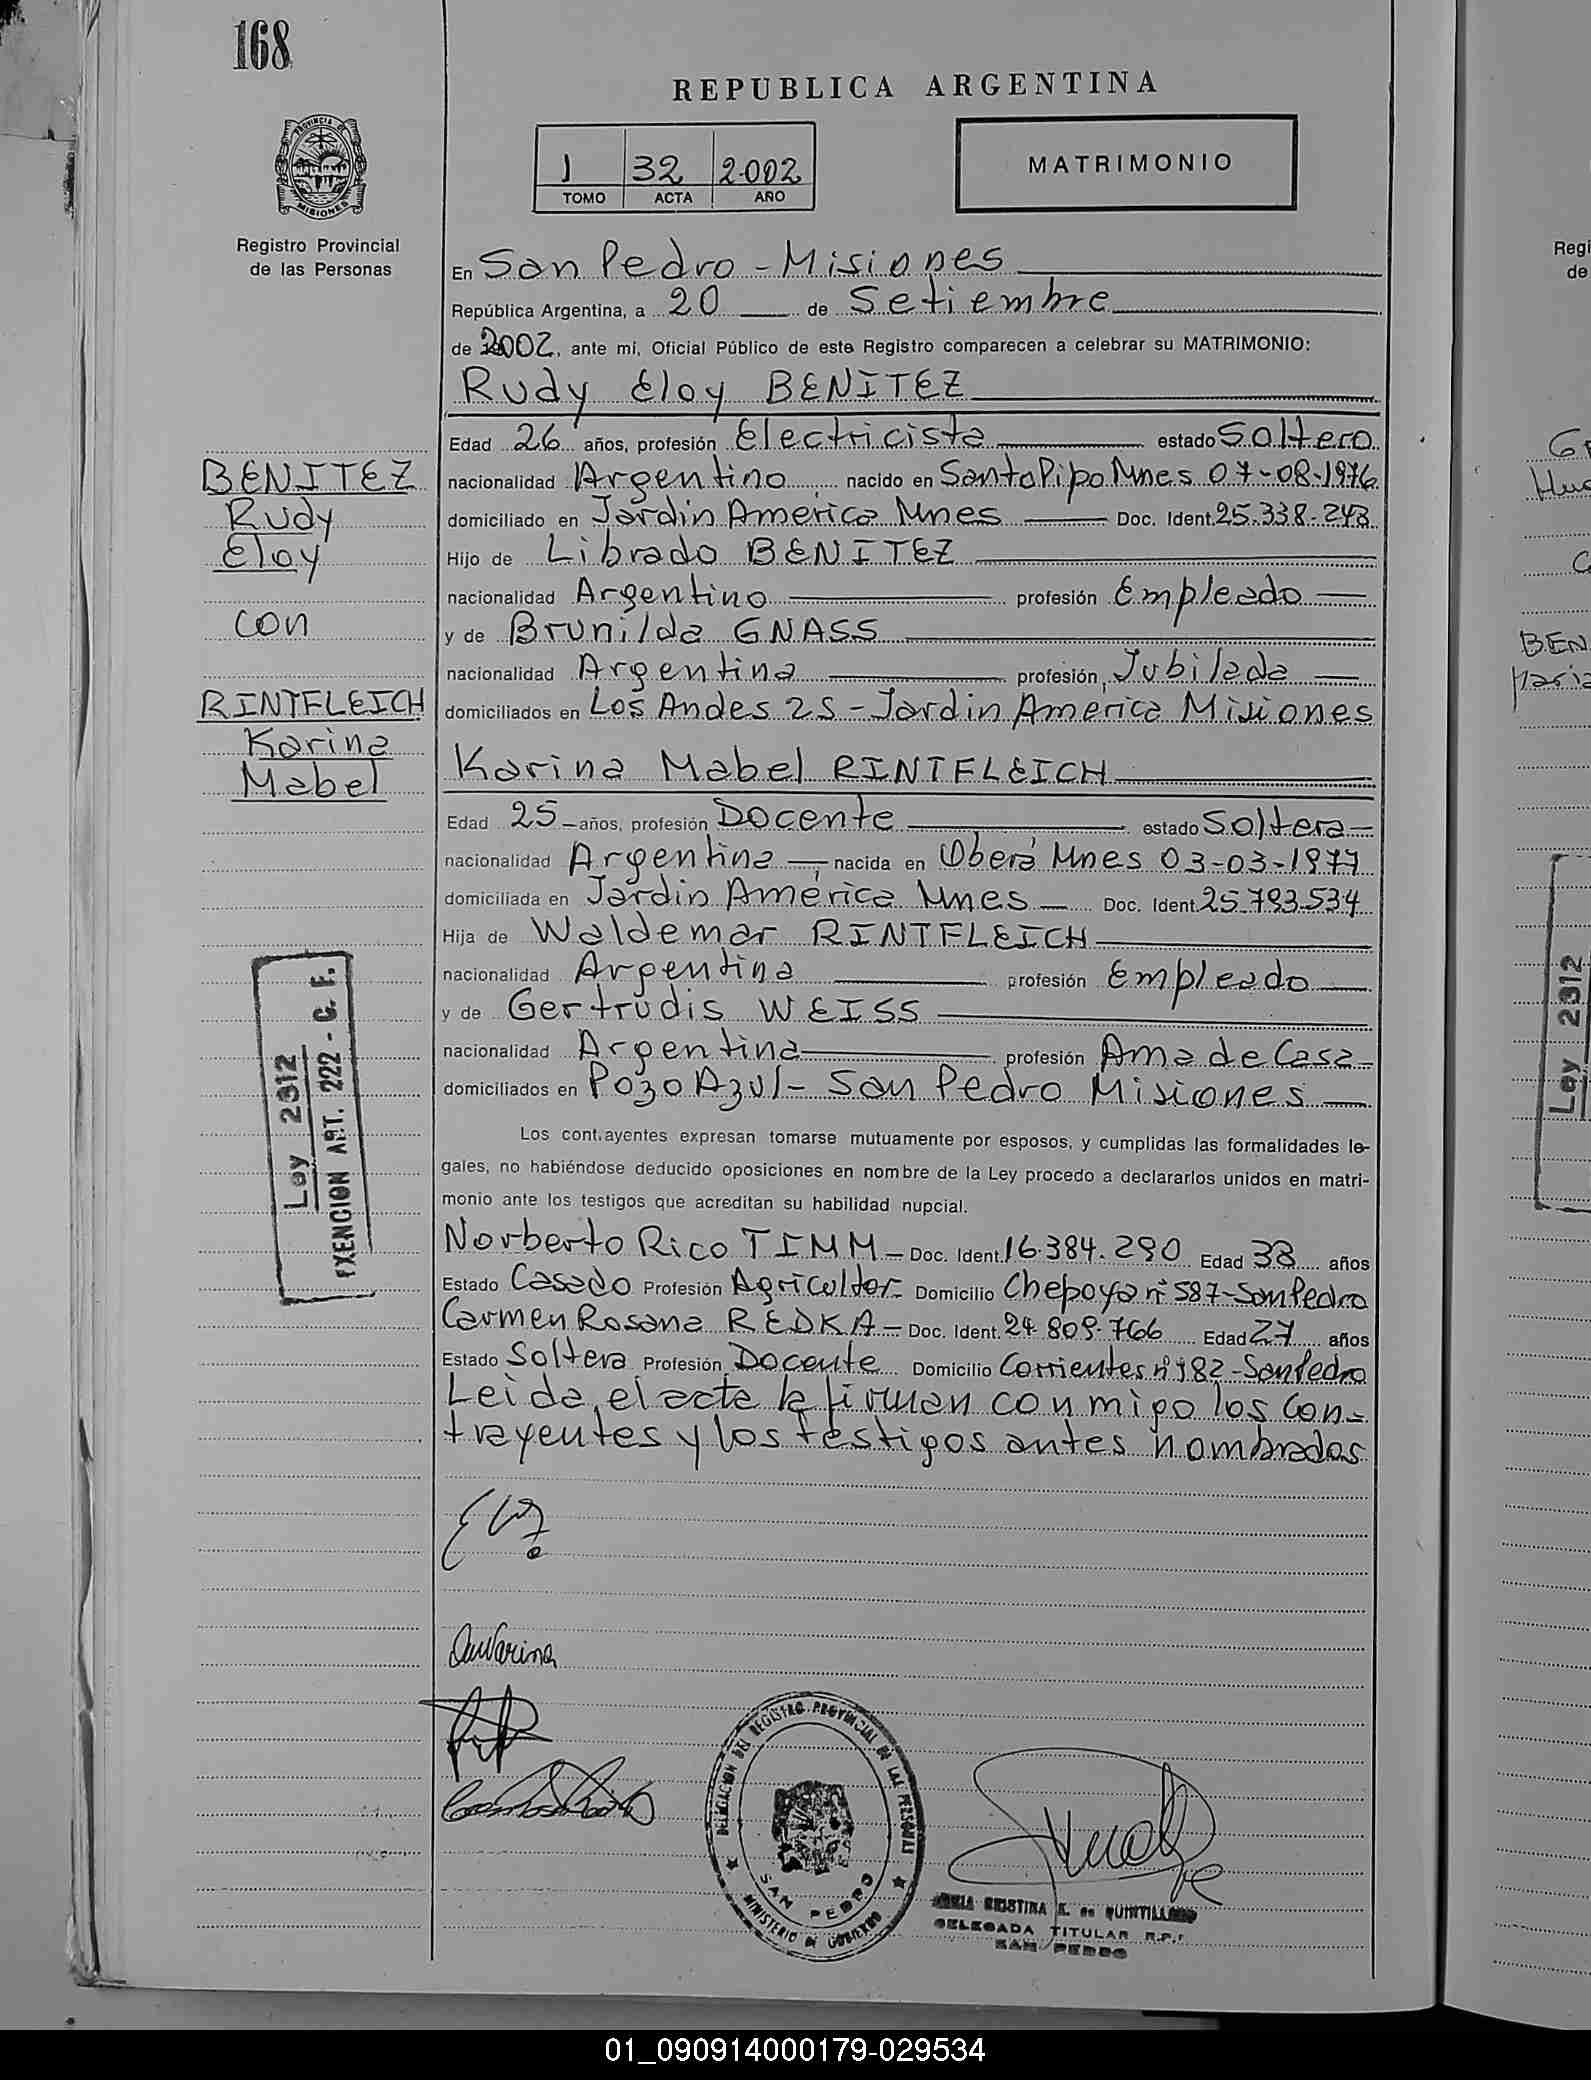 168
REPUBLICA ARGENTINA
1 32 2002
TOMO ACTA AÑO
MATRIMONIO
PROVINCIA DE MISIONES
Registro Provincial
de las Personas
En San Pedro - Misiones
República Argentina, a 20 de Setiembre
de 2002, ante mí, Oficial Público de este Registro comparecen a celebrar su MATRIMONIO:
Rudy Eloy BENITEZ
Edad 26 años, profesión Electricista estado Soltero
nacionalidad Argentino, nacido en Santo Pipo Mnes 07-08-1976
domiciliado en Jardin America Mnes Doc. Ident. 25.338.243
Hijo de Librado BENITEZ
nacionalidad Argentino profesión Empleado
y de Brunilda GNASS
nacionalidad Argentina profesión Jubilada
domiciliados en Los Andes 25 - Jardin America Misiones
BENITEZ
Rudy
Eloy
con
RINTFLEICH
Karina
Mabel
Karina Mabel RINTFLEICH
Edad 25 años, profesión Docente estado Soltera
nacionalidad Argentina, nacida en Oberá Mnes 03-03-1977
domiciliada en Jardin América Mnes Doc. Ident. 25.793.534
Hija de Waldemar RINTFLEICH
nacionalidad Argentina profesión Empleado
y de Gertrudis WEISS
nacionalidad Argentina profesión Ama de Casa
domiciliados en Pozo Azul - San Pedro Misiones
Ley 2312
EXENCION ART. 222 - C. F.
Los contrayentes expresan tomarse mutuamente por esposos, y cumplidas las formalidades le-
gales, no habiéndose deducido oposiciones en nombre de la Ley procedo a declararlos unidos en matri-
monio ante los testigos que acreditan su habilidad nupcial.
Norberto Rico TIMM - Doc. Ident. 16.384.290 Edad 38 años
Estado Casado Profesión Agricultor Domicilio Chepoya nº 587 - San Pedro
Carmen Rosana REDKA - Doc. Ident. 24.809.766 Edad 27 años
Estado Soltera Profesión Docente Domicilio Corrientes nº 182 - San Pedro
Leida, el acta la firman conmigo los con-
trayentes y los testigos antes nombrados
DELEGACION DEL REGISTRO PROVINCIAL DE LAS PERSONAS
SAN PEDRO
MINISTERIO DE GOBIERNO
CRISTINA E. de QUINTILLANO
DELEGADA TITULAR R.P.P.
SAN PEDRO
Regi
de
BEN
Maria
Ley 2312
01_090914000179-029534